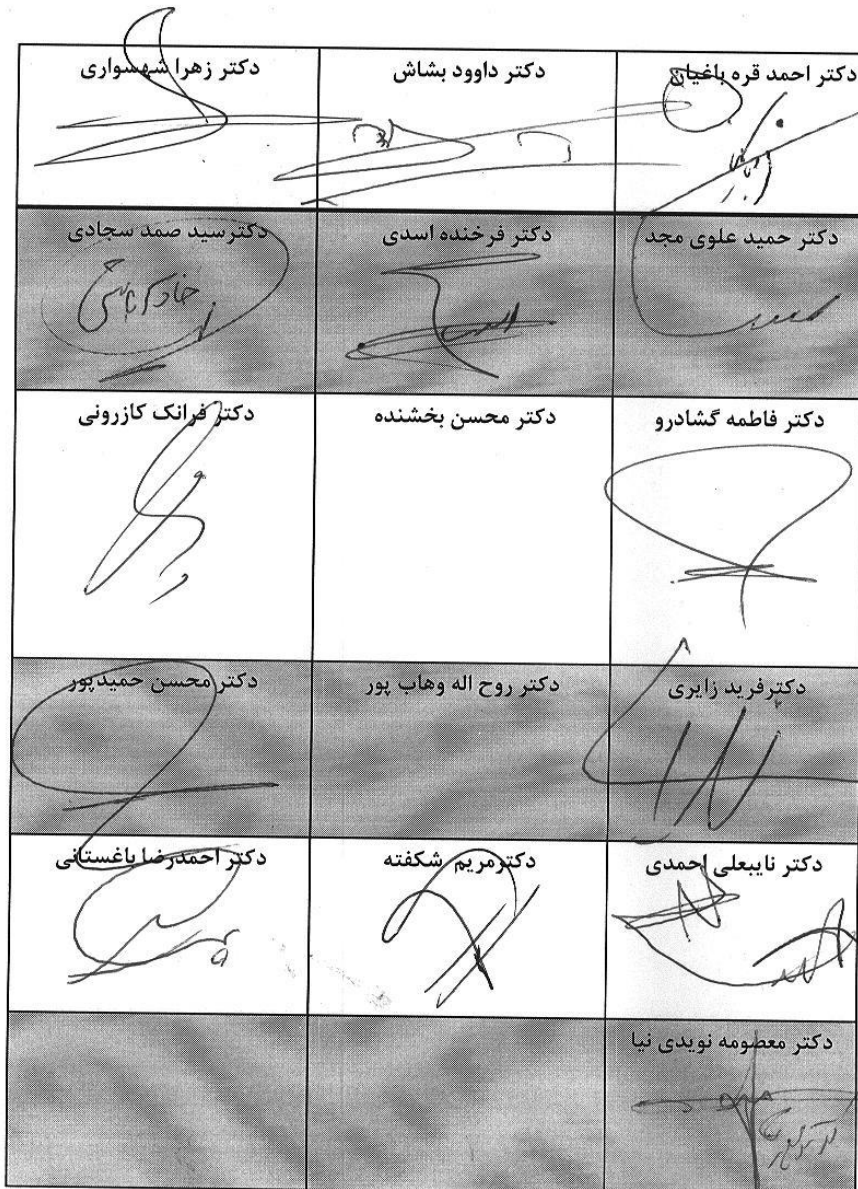 دکتر احمد قره باغیان
دکتر داوود بشاش
دکتر زهرا شهسواری
دکتر حمید علوی مجد
دکتر فرخنده اسدی
دکترسید صمد سجادی
دکتر فاطمه گشادرو
دکتر محسن بخشنده
دکتر فرانک کازرونی
دکترفرید زایری
دکتر روح اله وهاب پور
دکتر محسن حمیدپور
دکتر نایبعلی احمدی
دکترمریم شکفته
دکتر احمدرضا باغستانی
دکتر معصومه نویدی نیا